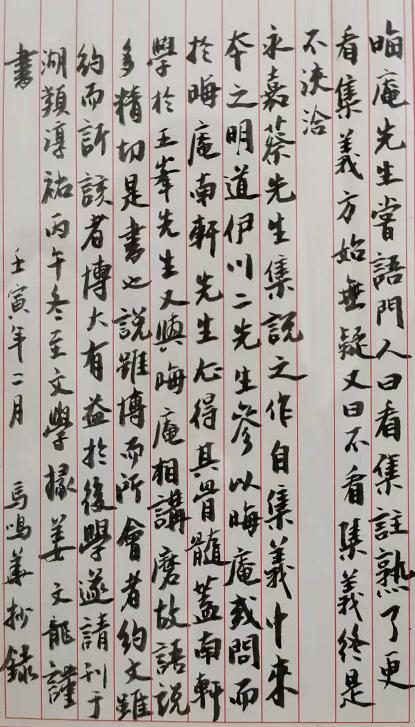 晦庵先生嘗語門人曰看集註熟了更
看集義方始無疑又曰不看集義終是
不浹洽
永嘉蔡先生集說之作自集義中來
本之明道伊川二先生參以晦庵或問而
於晦庵南軒先生尤得其骨髓蓋南軒
學於五峯先生又與晦庵相講磨故語說
多精切是書也說雖博而所會者約文雖
約而所該者博大有益於後學遂請刊于
湖類淳祐丙午冬至文學掾姜文龍謹
書 壬寅年二月 馬鳴 抄錄